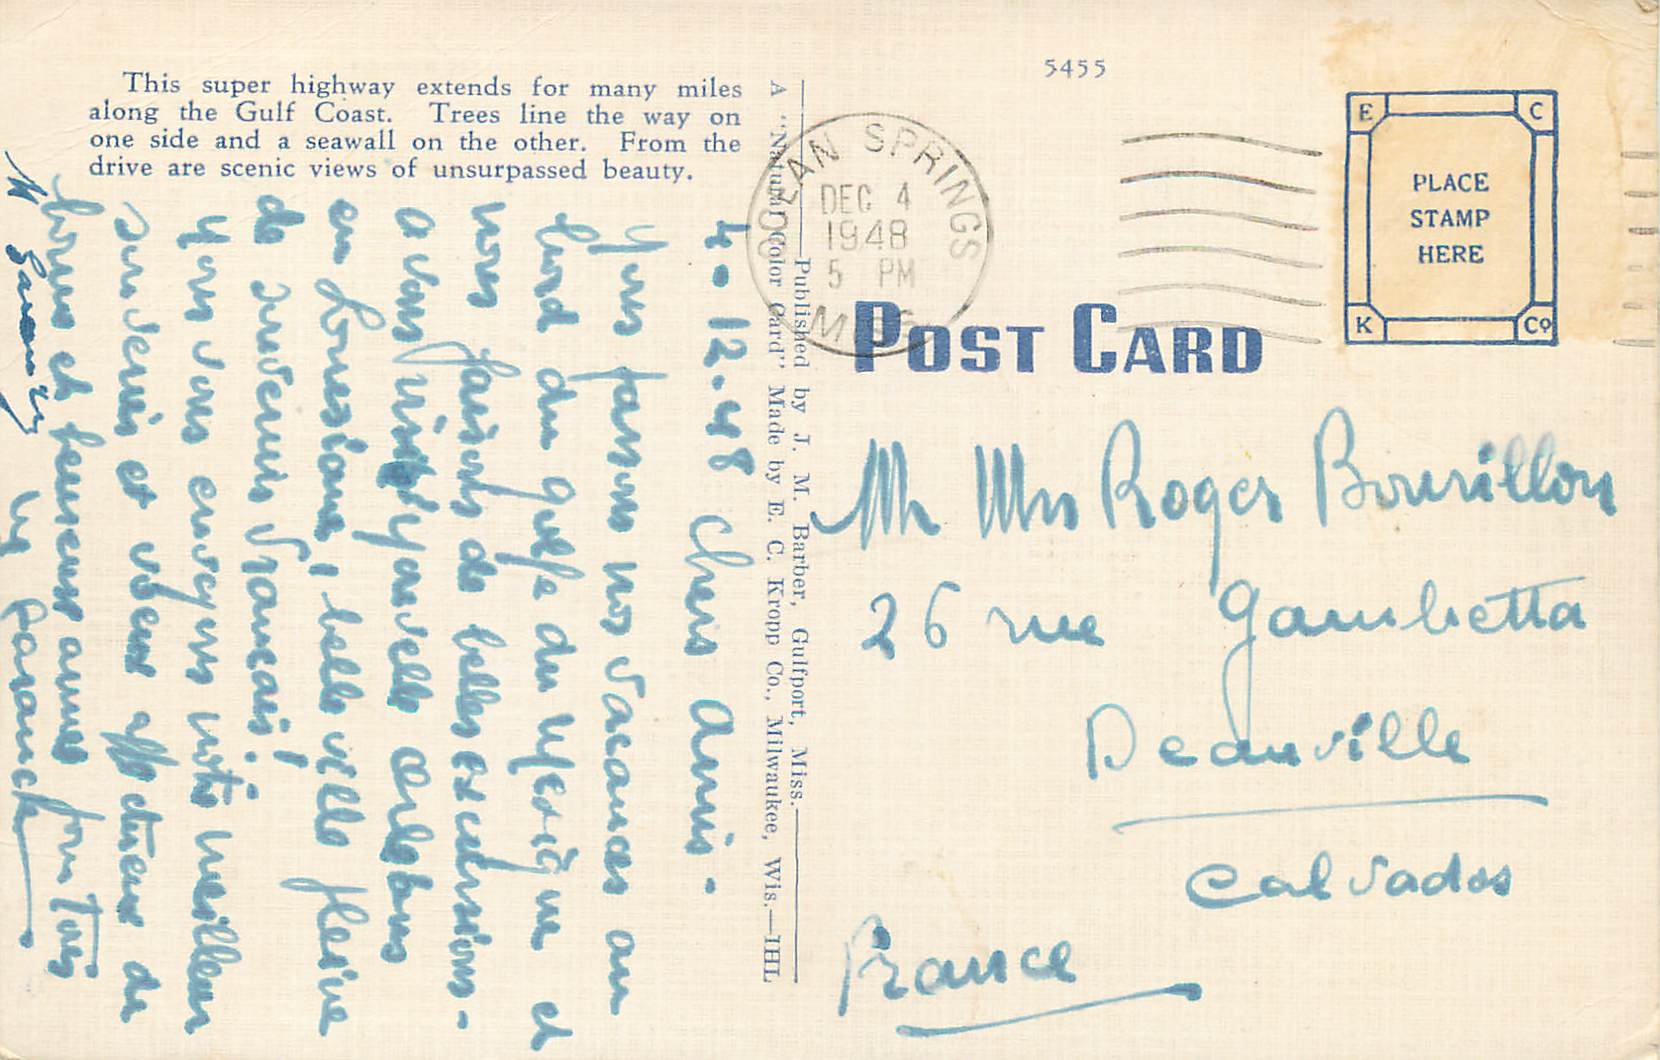 This super highway extends for many miles
along the Gulf Coast. Trees line the way on
one side and a seawall on the other. From the
drive are scenic views of unsurpassed beauty.
4-12-48 Chers Amis -
Nous passons nos vacances au
bord du golfe du Mexique et
nous faisons de belles excursions -
avons visité
en Louisiane, belle ville pleine
de souvenirs français!
vous envoyons notre meilleur
souvenir et voeux affectueux de
bonne et heureuse année pour tous
A "Natural Color Card" Made by E. C. Kropp Co., Milwaukee, Wis.—IHL
Published by J. M. Barber, Gulfport, Miss.
5455
OCEAN SPRINGS
DEC 4
1948
5 PM
MISS.
POST CARD
E C
PLACE
STAMP
HERE
K Co
Mr Mrs Roger Bourillon
26 rue Gambetta
Deauville
Calvados
France